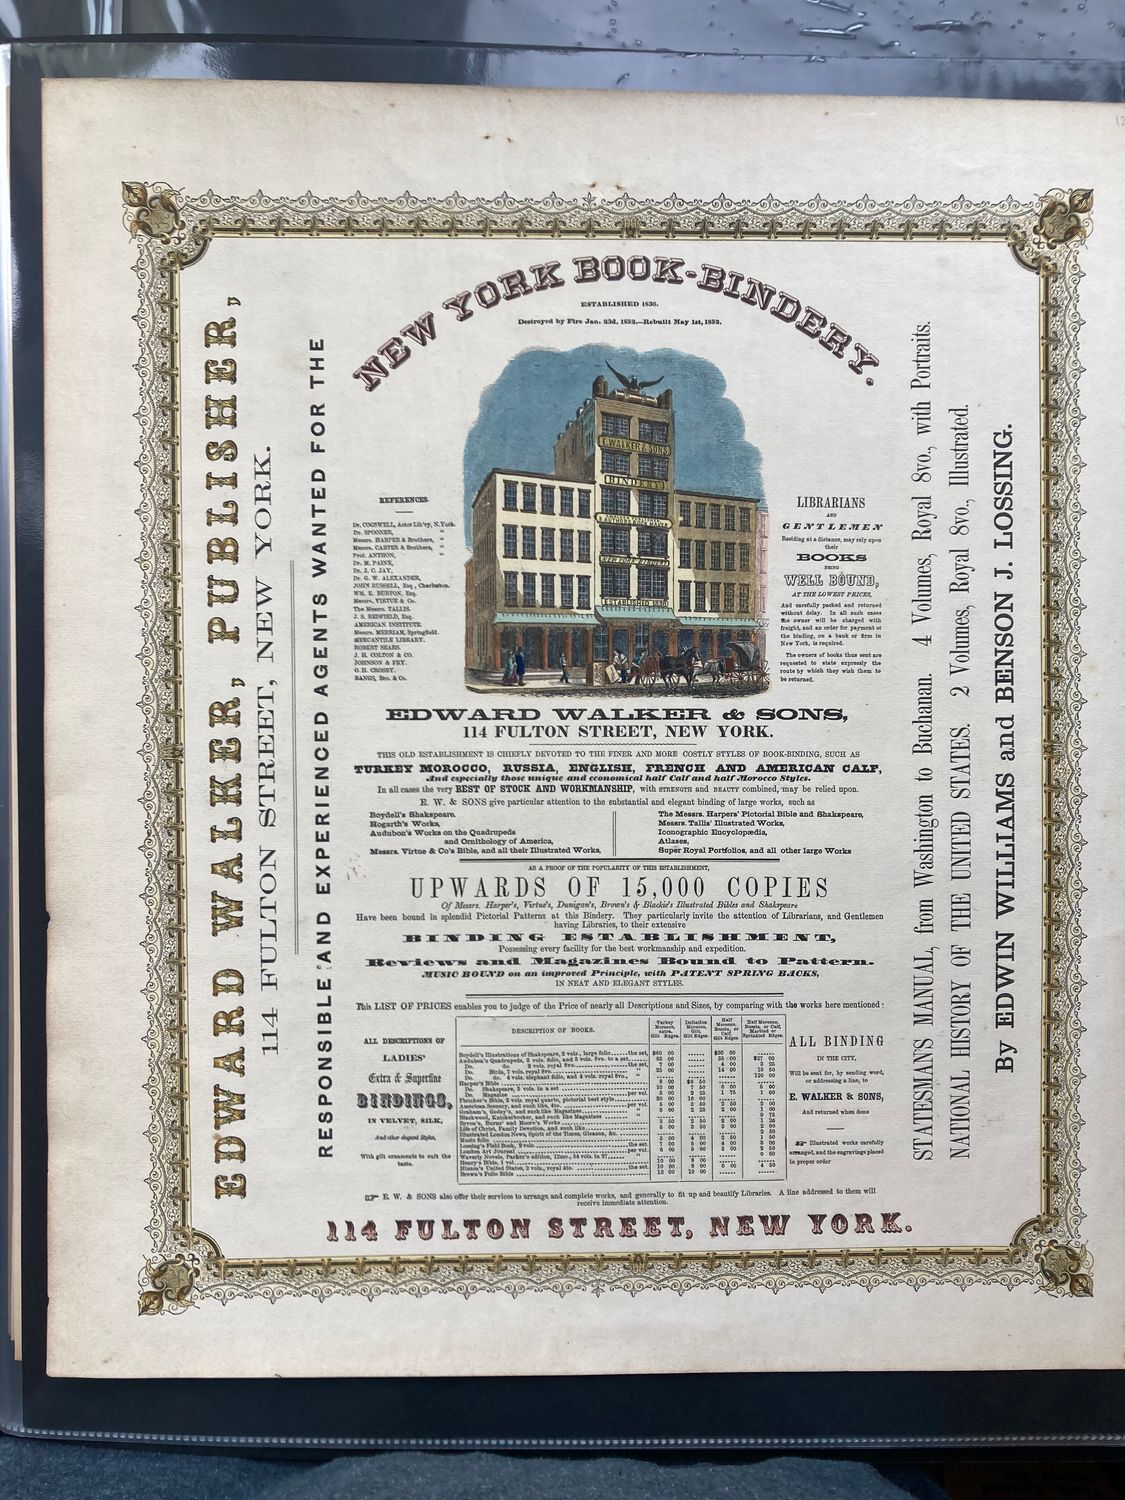 NEW YORK BOOK-BINDERY.
ESTABLISHED 1836.
Destroyed by Fire Jan. 23d, 1852.—Rebuilt May 1st, 1852.
EDWARD WALKER, PUBLISHER,
114 FULTON STREET, NEW YORK.
RESPONSIBLE AND EXPERIENCED AGENTS WANTED FOR THE
STATESMAN'S MANUAL, from Washington to Buchanan. 4 Volumes, Royal 8vo., with Portraits.
NATIONAL HISTORY OF THE UNITED STATES. 2 Volumes, Royal 8vo., Illustrated.
By EDWIN WILLIAMS and BENSON J. LOSSING.
E. WALKER & SONS
BINDERY
ESTABLISHED 1836
REFERENCES.
Dr. COGSWELL, Astor Lib'ry, N.York.
Dr. SPOONER, "
Messrs. HARPER & Brothers, "
Messrs. CARTER & Brothers, "
Prof. ANTHON, "
Dr. M. PAINE,
Dr. J. C. JAY,
Dr. G. W. ALEXANDER,
JOHN RUSSELL, Esq., Charleston.
WM. E. BURTON, Esq.
Messrs. VIRTUE & Co.
The Messrs. TALLIS.
J. S. REDFIELD, Esq.
AMERICAN INSTITUTE.
Messrs. MERRIAM, Springfield.
MERCANTILE LIBRARY.
ROBERT SEARS.
J. H. COLTON & CO.
JOHNSON & FRY.
O. H. CROSBY.
BANGS, Bro. & Co.
LIBRARIANS
AND
GENTLEMEN
Residing at a distance, may rely upon
their
BOOKS
BEING
WELL BOUND,
AT THE LOWEST PRICES,
And carefully packed and returned
without delay. In all such cases
the owner will be charged with
freight, and an order for payment of
the binding, on a bank or firm in
New York, is required.
The owners of books thus sent are
requested to state expressly the
route by which they wish them to
be returned.
EDWARD WALKER & SONS,
114 FULTON STREET, NEW YORK.
THIS OLD ESTABLISHMENT IS CHIEFLY DEVOTED TO THE FINER AND MORE COSTLY STYLES OF BOOK-BINDING, SUCH AS
TURKEY MOROCCO, RUSSIA, ENGLISH, FRENCH AND AMERICAN CALF,
And especially those unique and economical half Calf and half Morocco Styles.
In all cases the very BEST OF STOCK AND WORKMANSHIP, with STRENGTH and BEAUTY combined, may be relied upon.
E. W. & SONS give particular attention to the substantial and elegant binding of large works, such as
Boydell's Shakspeare.
Hogarth's Works,
Audubon's Works on the Quadrupeds
and Ornithology of America,
Messrs. Virtue & Co's Bible, and all their Illustrated Works,
The Messrs. Harpers' Pictorial Bible and Shakspeare,
Messrs. Tallis' Illustrated Works,
Iconographic Encyclopædia,
Atlases,
Super Royal Portfolios, and all other large Works
AS A PROOF OF THE POPULARITY OF THIS ESTABLISHMENT,
UPWARDS OF 15,000 COPIES
Of Messrs. Harper's, Virtue's, Dunigan's, Brown's & Blackie's Illustrated Bibles and Shakspeare
Have been bound in splendid Pictorial Patterns at this Bindery. They particularly invite the attention of Librarians, and Gentlemen
having Libraries, to their extensive
BINDING ESTABLISHMENT,
Possessing every facility for the best workmanship and expedition.
Reviews and Magazines Bound to Pattern.
MUSIC BOUND on an improved Principle, with PATENT SPRING BACKS,
IN NEAT AND ELEGANT STYLES.
This LIST OF PRICES enables you to judge of the Price of nearly all Descriptions and Sizes, by comparing with the works here mentioned:
ALL DESCRIPTIONS OF
LADIES'
Extra & Superfine
BINDINGS,
IN VELVET, SILK,
And other elegant Styles,
With gift ornaments to suit the
taste.
DESCRIPTION OF BOOKS.
Turkey Morocco, extra, Gilt Edges.
Imitation Morocco, Gilt Edges.
Half Morocco, Russia, or Calf, Gilt Edges.
Half Morocco, Russia, or Calf, Marbled or Sprinkled Edges.
Boydell's Illustrations of Shakspeare, 2 vols., large folio......the set,
Audubon's Quadrupeds, 3 vols. folio, and 3 vols. 8vo. to a set
Do. do. 2 vols. royal 8vo. the set,
Do. Birds, 7 vols. royal 8vo.
Do. do. 4 vols. elephant folio, and 4 vols. royal 8vo.,
Harper's Bible
Do. Shakspeare, 3 vols. in a set
Do. Magazine per vol.
Fletcher's Bible, 2 vols. royal quarto, pictorial best style
American Scenery, and such like, 4to. per vol.
Graham's, Godey's, and such like Magazines
Blackwood, Knickerbocker, and such like Magazines
Byron's, Burns' and Moore's Works
Life of Christ, Family Devotion, and such like
Illustrated London News, Spirit of the Times, Gleason, &c.
Music folio
Lossing's Field Book, 2 vols. the set.
London Art Journal per vol.
Waverly Novels, Parker's edition, 12mo., 54 vols. in 27
Henry's Bible, 1 vol.
Hinton's United States, 2 vols., royal 4to. the set.
Brown's Folio Bible
ALL BINDING
IN THE CITY,
Will be sent for, by sending word,
or addressing a line, to
E. WALKER & SONS,
And returned when done
☞ Illustrated works carefully
arranged, and the engravings placed
in proper order
☞ E. W. & SONS also offer their services to arrange and complete works, and generally to fit up and beautify Libraries. A line addressed to them will
receive immediate attention.
114 FULTON STREET, NEW YORK.